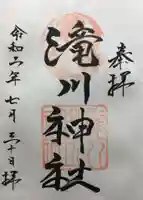 奉拝
滝川神社
令和六年七月三十日拝